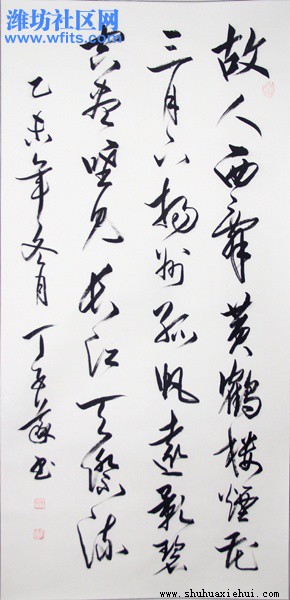 潍坊社区网
www.wfits.com
故人西辞黄鶴楼煙花
三月下揚州孤帆遠影碧
空尽唯见长江天際流
乙未年冬月 丁 书
www.shuhuaxiehui.com